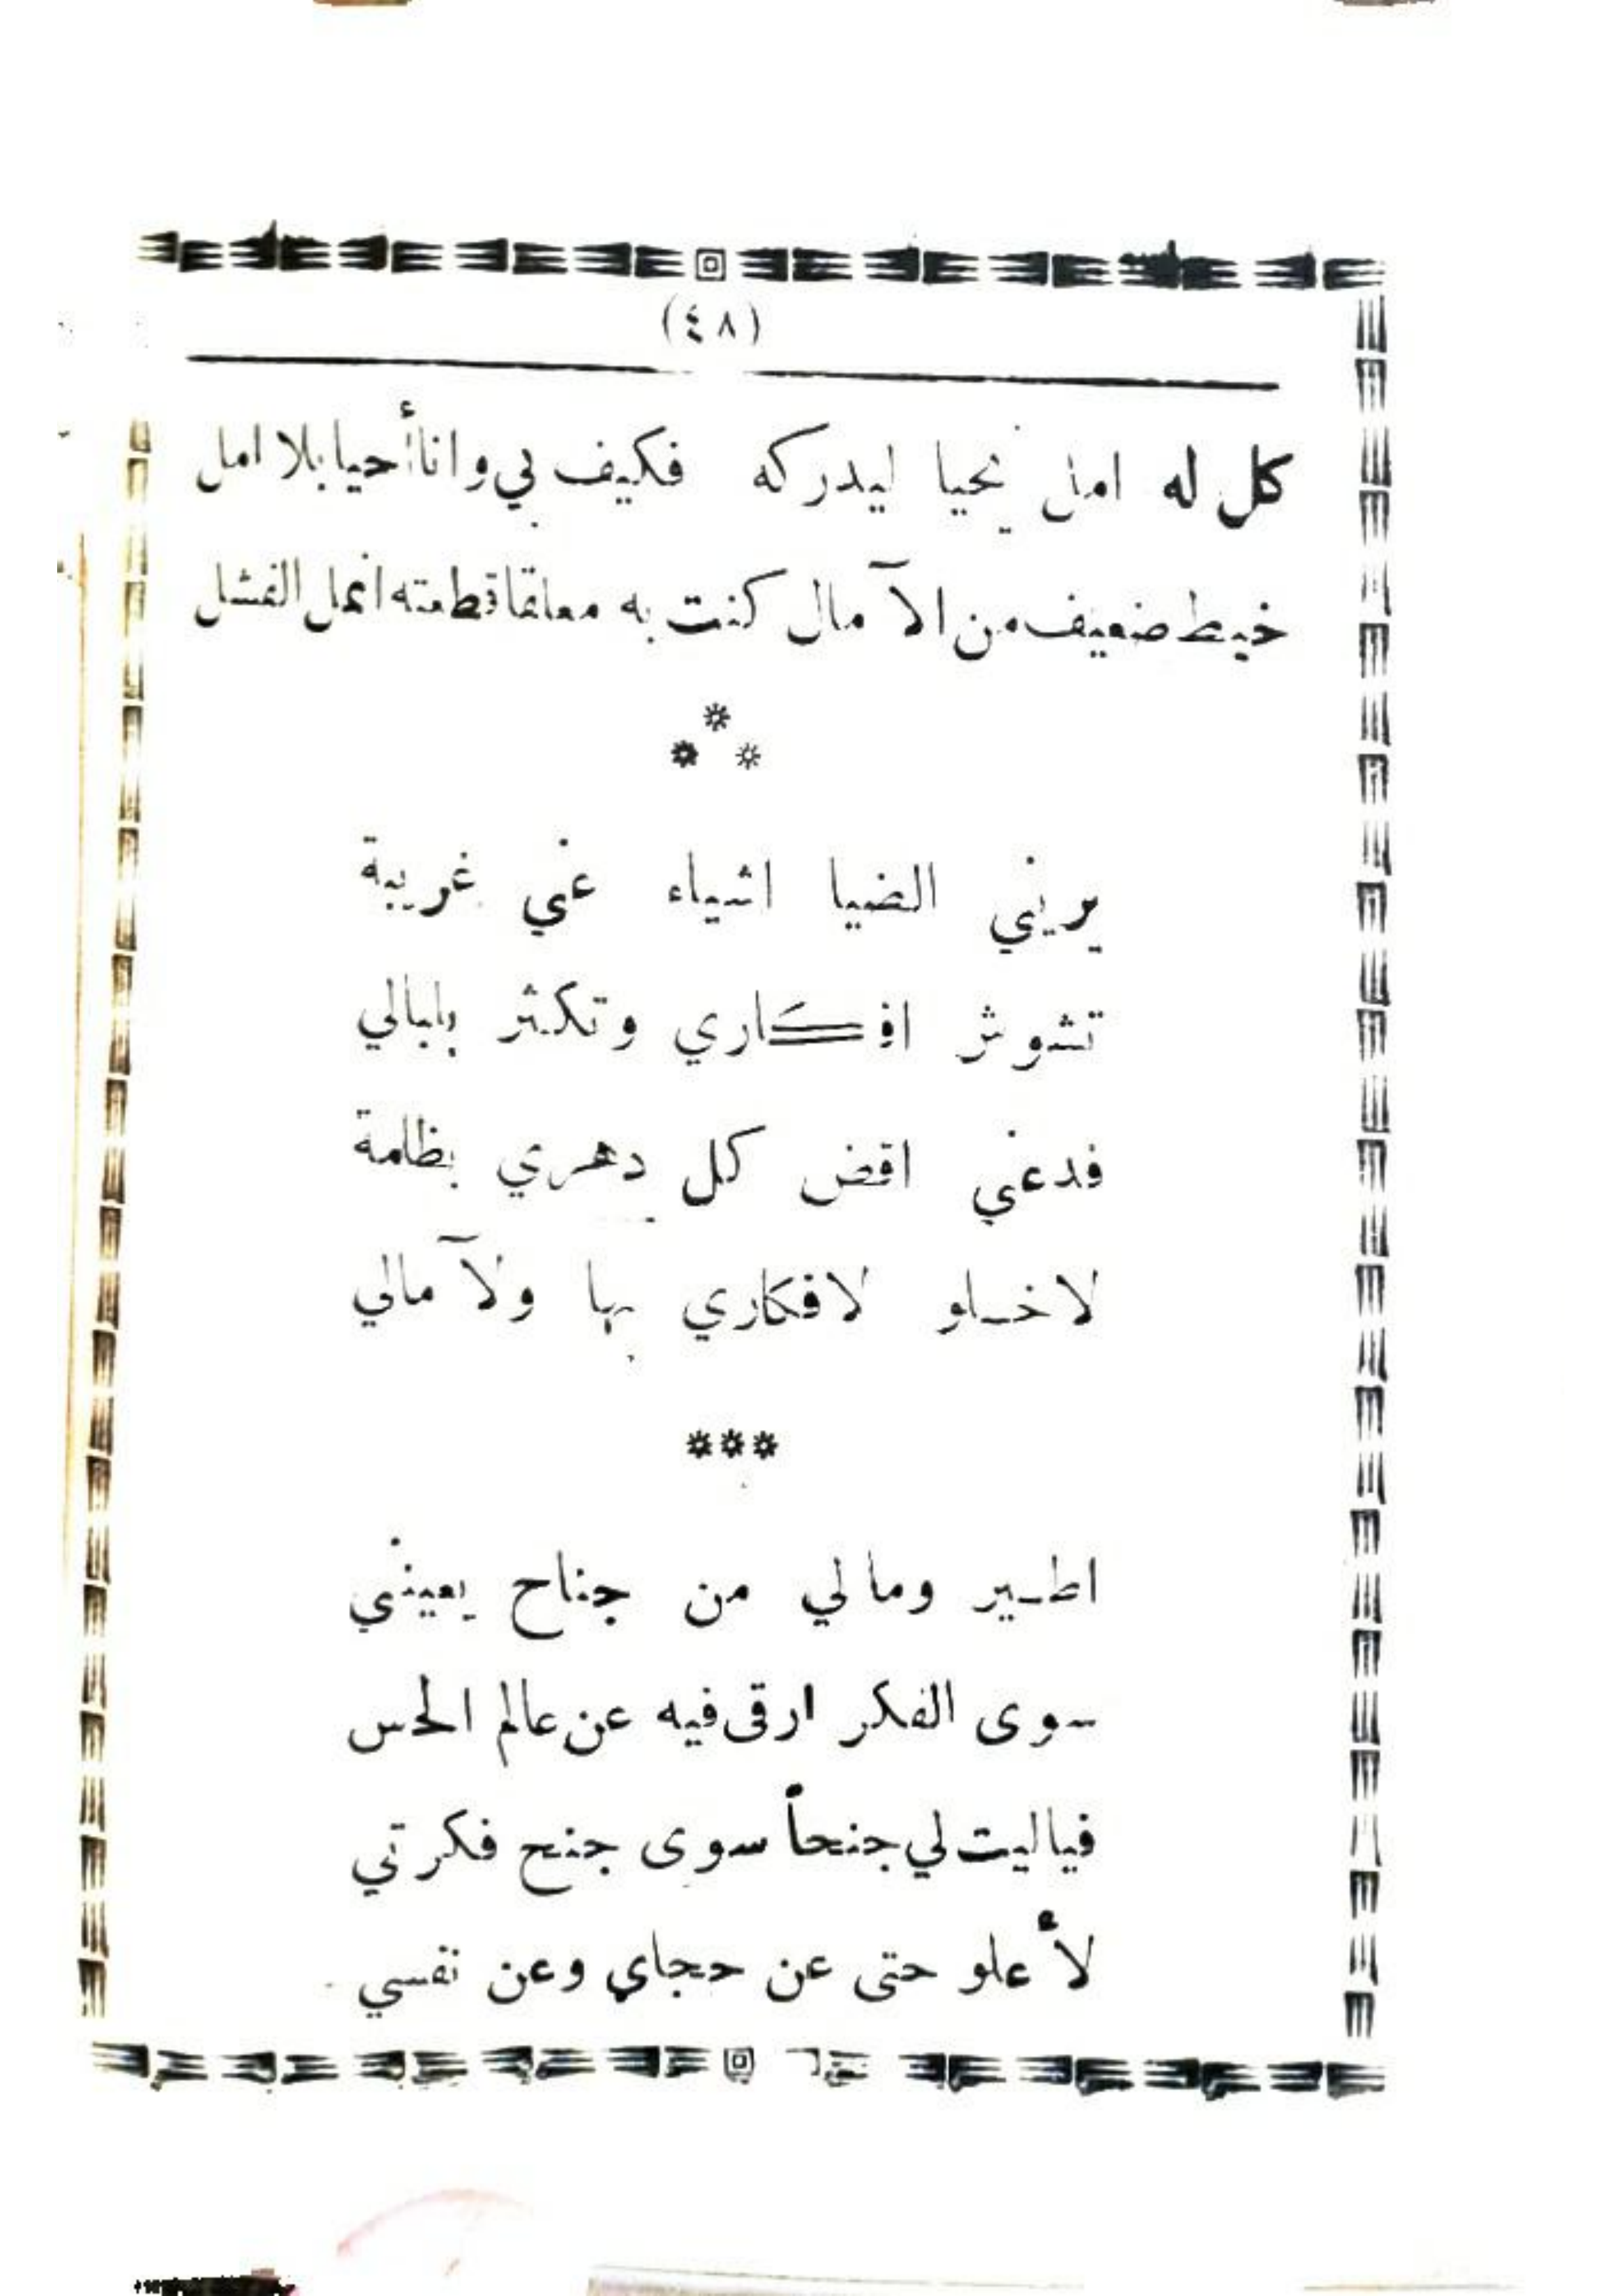 (٤٨)
كل له امل يحيا ليدركه فكيف بي وانا أحيا بلا امل
خيط ضعيف من الآمال كنت به معلقا قطعته انمل الفشل
***
يريني الضيا اشياء عني غريبة
تشوش افكاري وتكثر بلبالي
فدعني اقض كل دهري بظلمة
لاخلو لافكاري بها ولآمالي
***
اطير ومالي من جناح يعينني
سوى الفكر ارقى فيه عن عالم الحس
فياليت لي جنحاً سوى جنح فكرتي
لأعلو حتى عن حجاي وعن نفسي